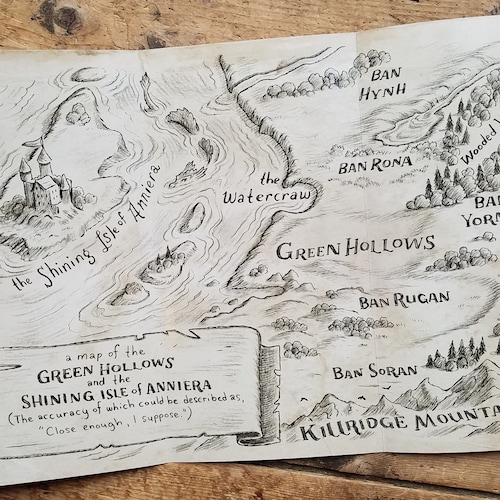 BAN
HYNH
BAN RONA
the
Watercraw
the Shining Isle of Anniera
GREEN HOLLOWS
BAN RUGAN
BAN SORAN
KILLRIDGE MOUNTA
a map of the
GREEN HOLLOWS
and the
SHINING ISLE of ANNIERA
(The accuracy of which could be described as,
"Close enough, I suppose.")